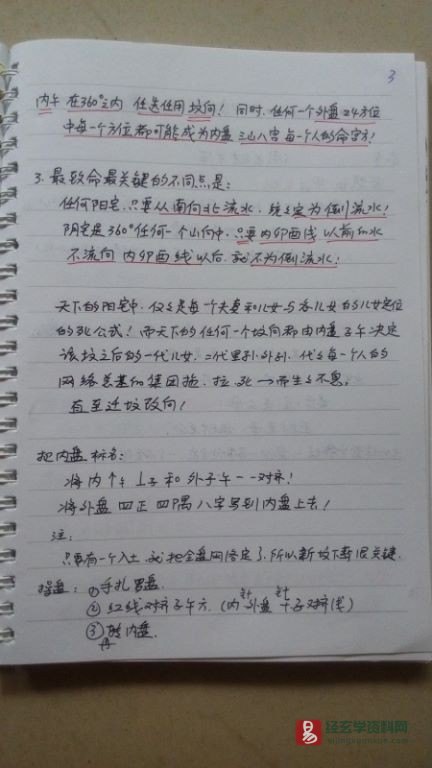 3
内午在360°之内 任意任用坟向！同时，任何一个外盘24方位
中每一个方位都可能成为内盘三山八字每一个人的命字方！
3. 最致命最关键的不同点是：
任何阳宅，只要从南向北流水，统之定为倒流水！
阴宅是360°任何一个山向中，只要内卯酉线以前的水
不流向内卯酉线以后，就不为倒流水！
天下的阳宅中，仅仅是每一个夫妻和儿女与各儿女的儿女定位
的死公式！而天下的任何一个坟向都由内盘子午决定
该坟之后的一代儿女，二代里孙外孙，代代每一个人的
网络关基的集团拖、拉、死一而生生不息。
直至迁坟改向！
把内盘标名：
将内↑午⊥子和外子午一一对齐！
将外盘四正四隅八字写到内盘上去！
注：
只要有一个入土，就把全盘网络定了，所以新坟下葬很关键．
操盘：①手扎罗盘
②红线对齐子午方．(内针外盘针子对齐线)
③再转内盘．
易 经玄学资料网